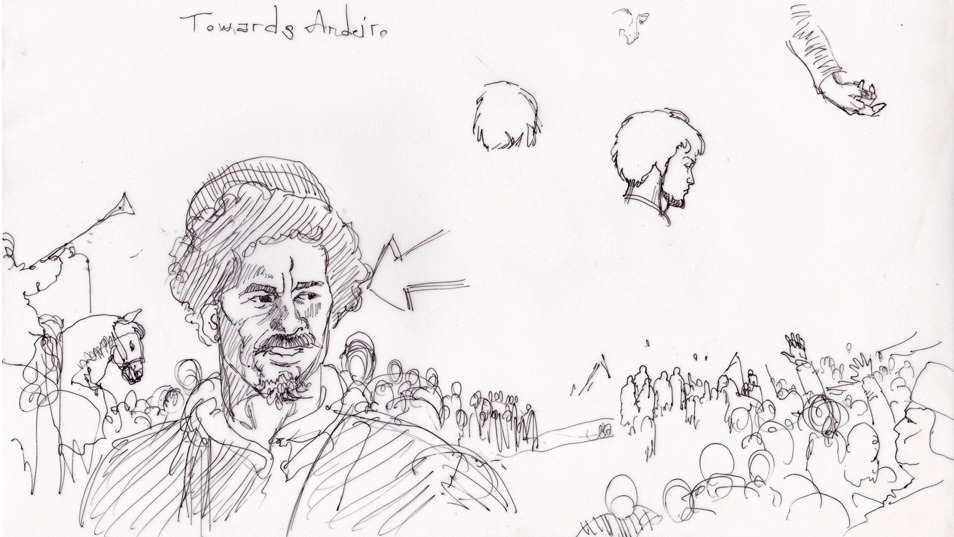 Towards Andeiro